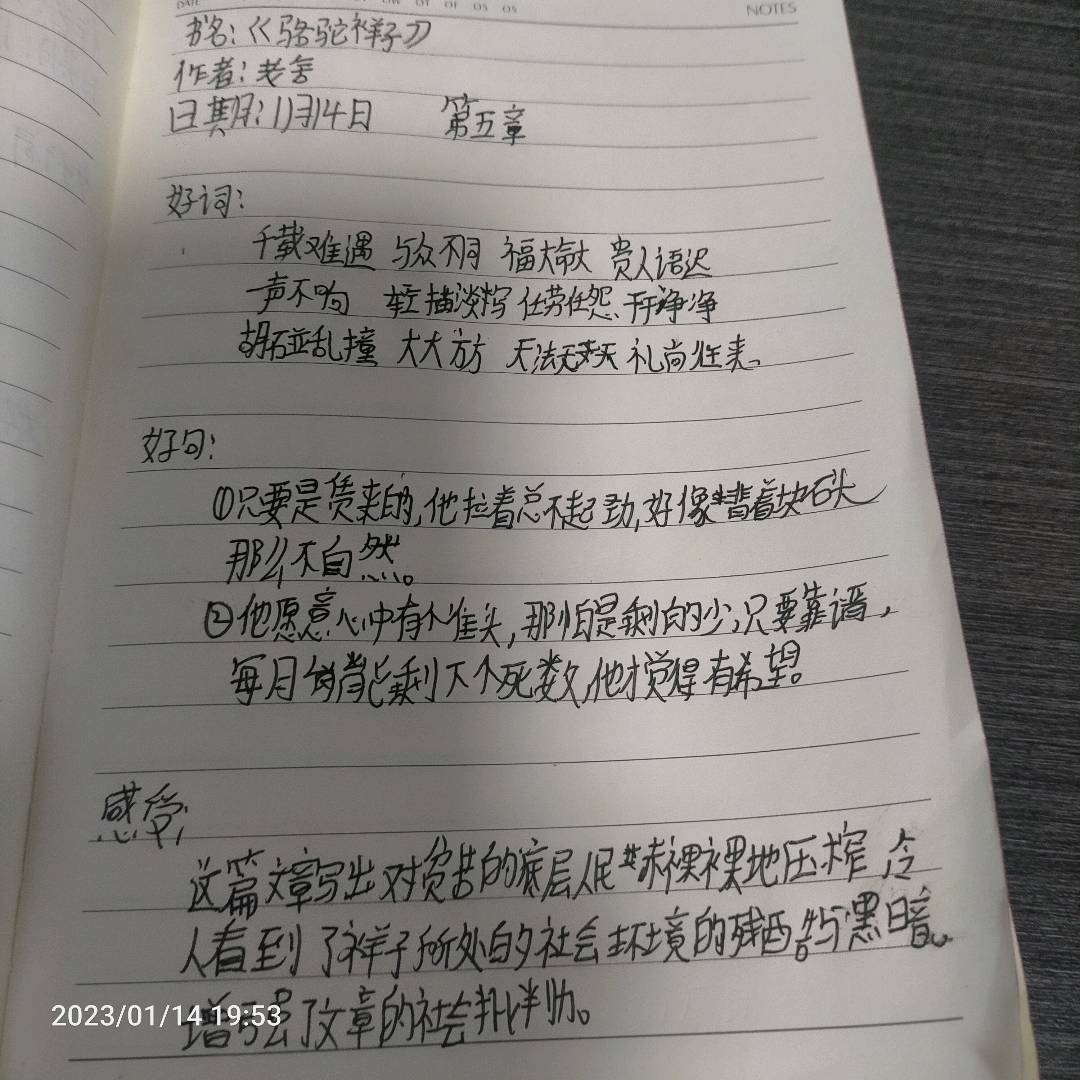 NOTES
书名:《骆驼祥子》
作者:老舍
日期:1月14日 第五章
好词:
千载难遇 与众不同 福大命大 贵人语迟
一声不响 轻描淡写 任劳任怨 干干净净
胡碰乱撞 大大方方 无法无天 礼尚往来。
好句:
①只要是赁来的,他拉着总不起劲,好像背着块石头
那么不自然。
②他愿意心中有个准头,那怕是剩的少,只要靠谱,
每月能剩下个死数,他才觉得有希望。
感受:
这篇文章写出对贫苦的底层人民赤裸裸地压榨 令
人看到了祥子所处的社会环境的残酷与黑暗。
增强了文章的社会批判力。
2023/01/14 19:53